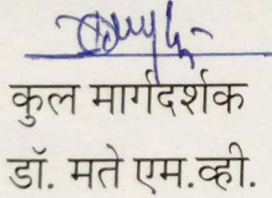 कुल मार्गदर्शक
डॉ. मते एम.व्ही.